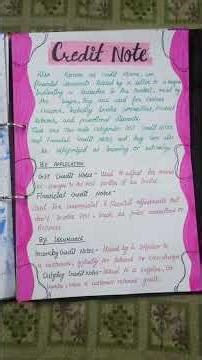 Credit Note
Also known as Credit Memos, are
financial documents issued by a seller to a buyer
indicating a reduction in the
buyer, they are used for various
reasons, including
returns, and promotional discounts.
There are two main categories: GST Credit Notes
and Financial Credit Notes and they can also
be categorized as incoming or outgoing.
By Application
GST Credit Notes - Used to adjust for errors
or changes to the GST portion of an invoice.
Financial Credit Notes -
Used for commercial & financial adjustments that
don't involve GST, such as price corrections or
By Issuance
Incoming Credit Notes - Issued by a Supplier to
a customer, typically for
Outgoing Credit Notes - Issued to a Supplier,
when a customer returns goods.